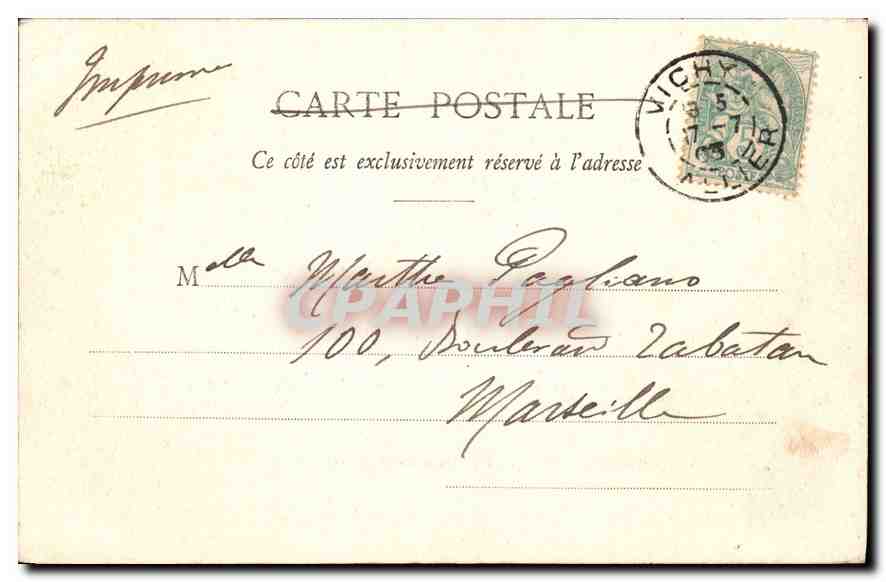 Imprimé
CARTE POSTALE
Ce côté est exclusivement réservé à l'adresse
VICHY
5
17 -7
03
ALLIER
Melle Marthe Pagliano
100, Boulevard Zabatau
Marseille
CPAPHIL